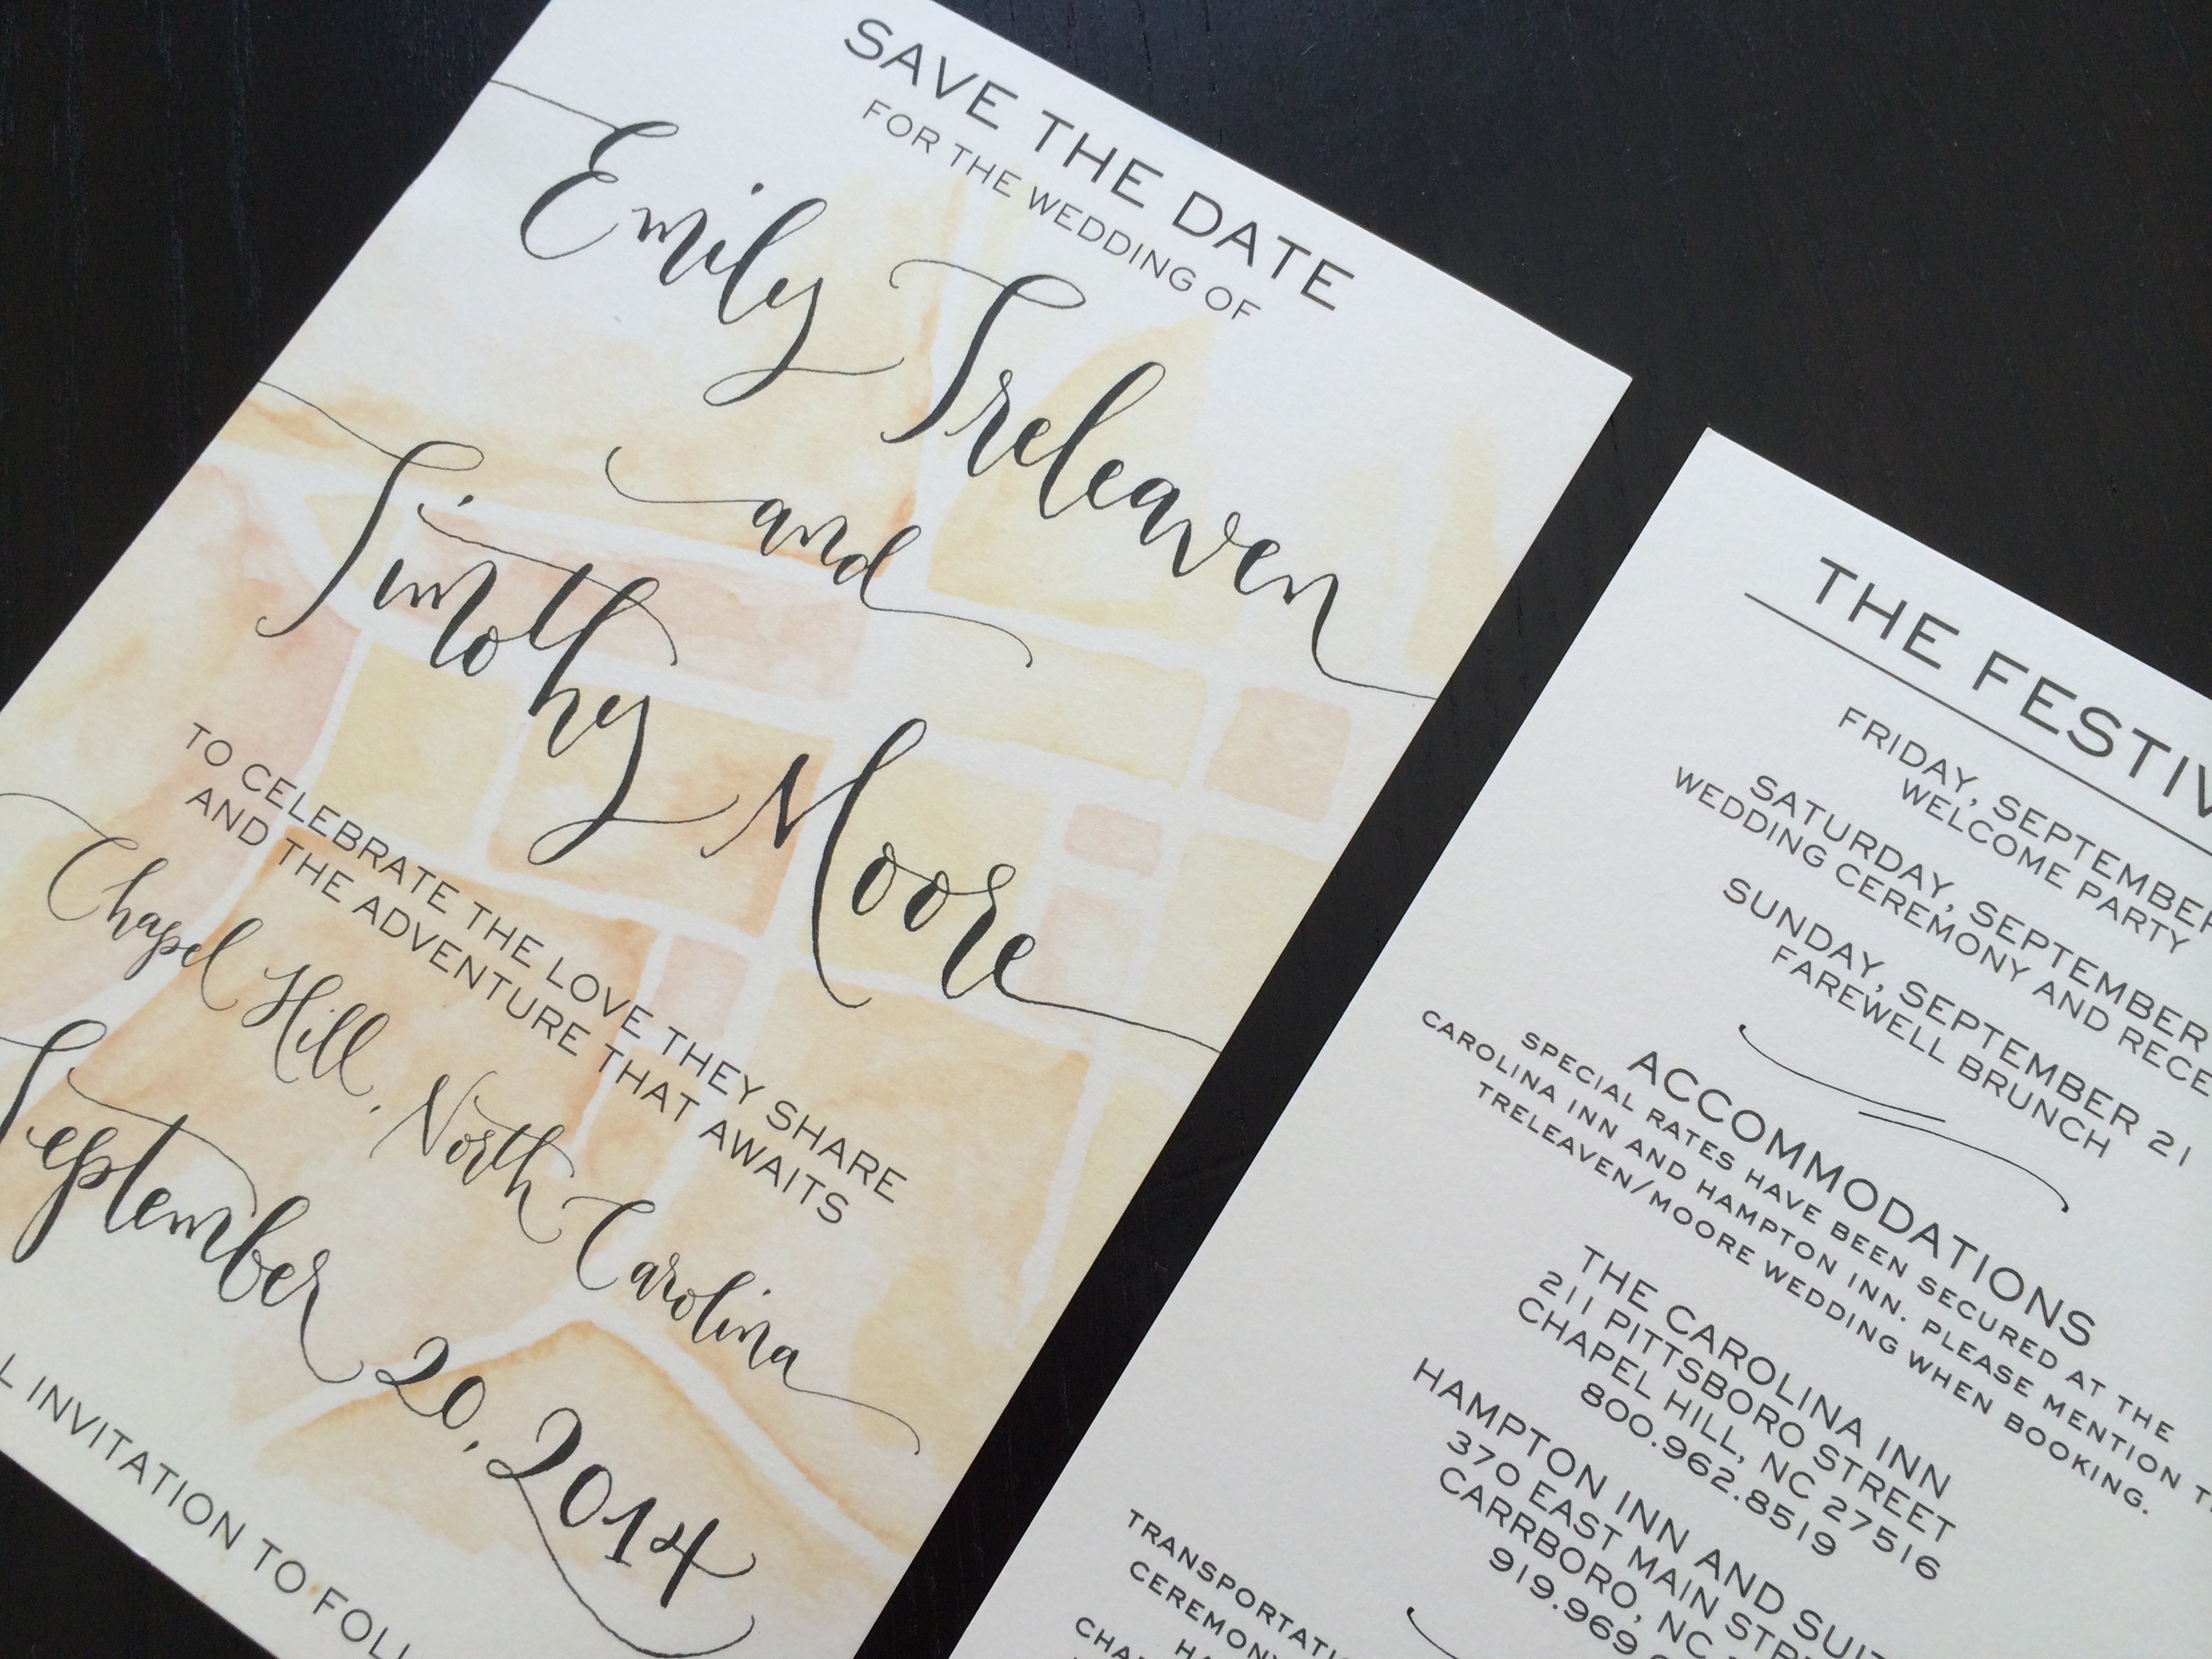 SAVE THE DATE
FOR THE WEDDING OF
Emily Treleaven
and
Timothy Moore
TO CELEBRATE THE LOVE THEY SHARE
AND THE ADVENTURE THAT AWAITS
Chapel Hill, North Carolina
September 20, 2014
INVITATION TO
THE
FRIDAY, SEPTEMBER
WELCOME PARTY
SATURDAY, SEPTEMBER
WEDDING CEREMONY AND
SUNDAY, SEPTEMBER 21
FAREWELL BRUNCH
ACCOMMODATIONS
SPECIAL RATES HAVE BEEN SECURED AT THE
CAROLINA INN AND HAMPTON INN. PLEASE MENTION
TRELEAVEN/MOORE WEDDING WHEN BOOKING.
THE CAROLINA INN
211 PITTSBORO STREET
CHAPEL HILL, NC 27516
800.962.8519
HAMPTON INN AND
370 EAST MAIN
CARRBORO, NC
919.969
CEREMONY